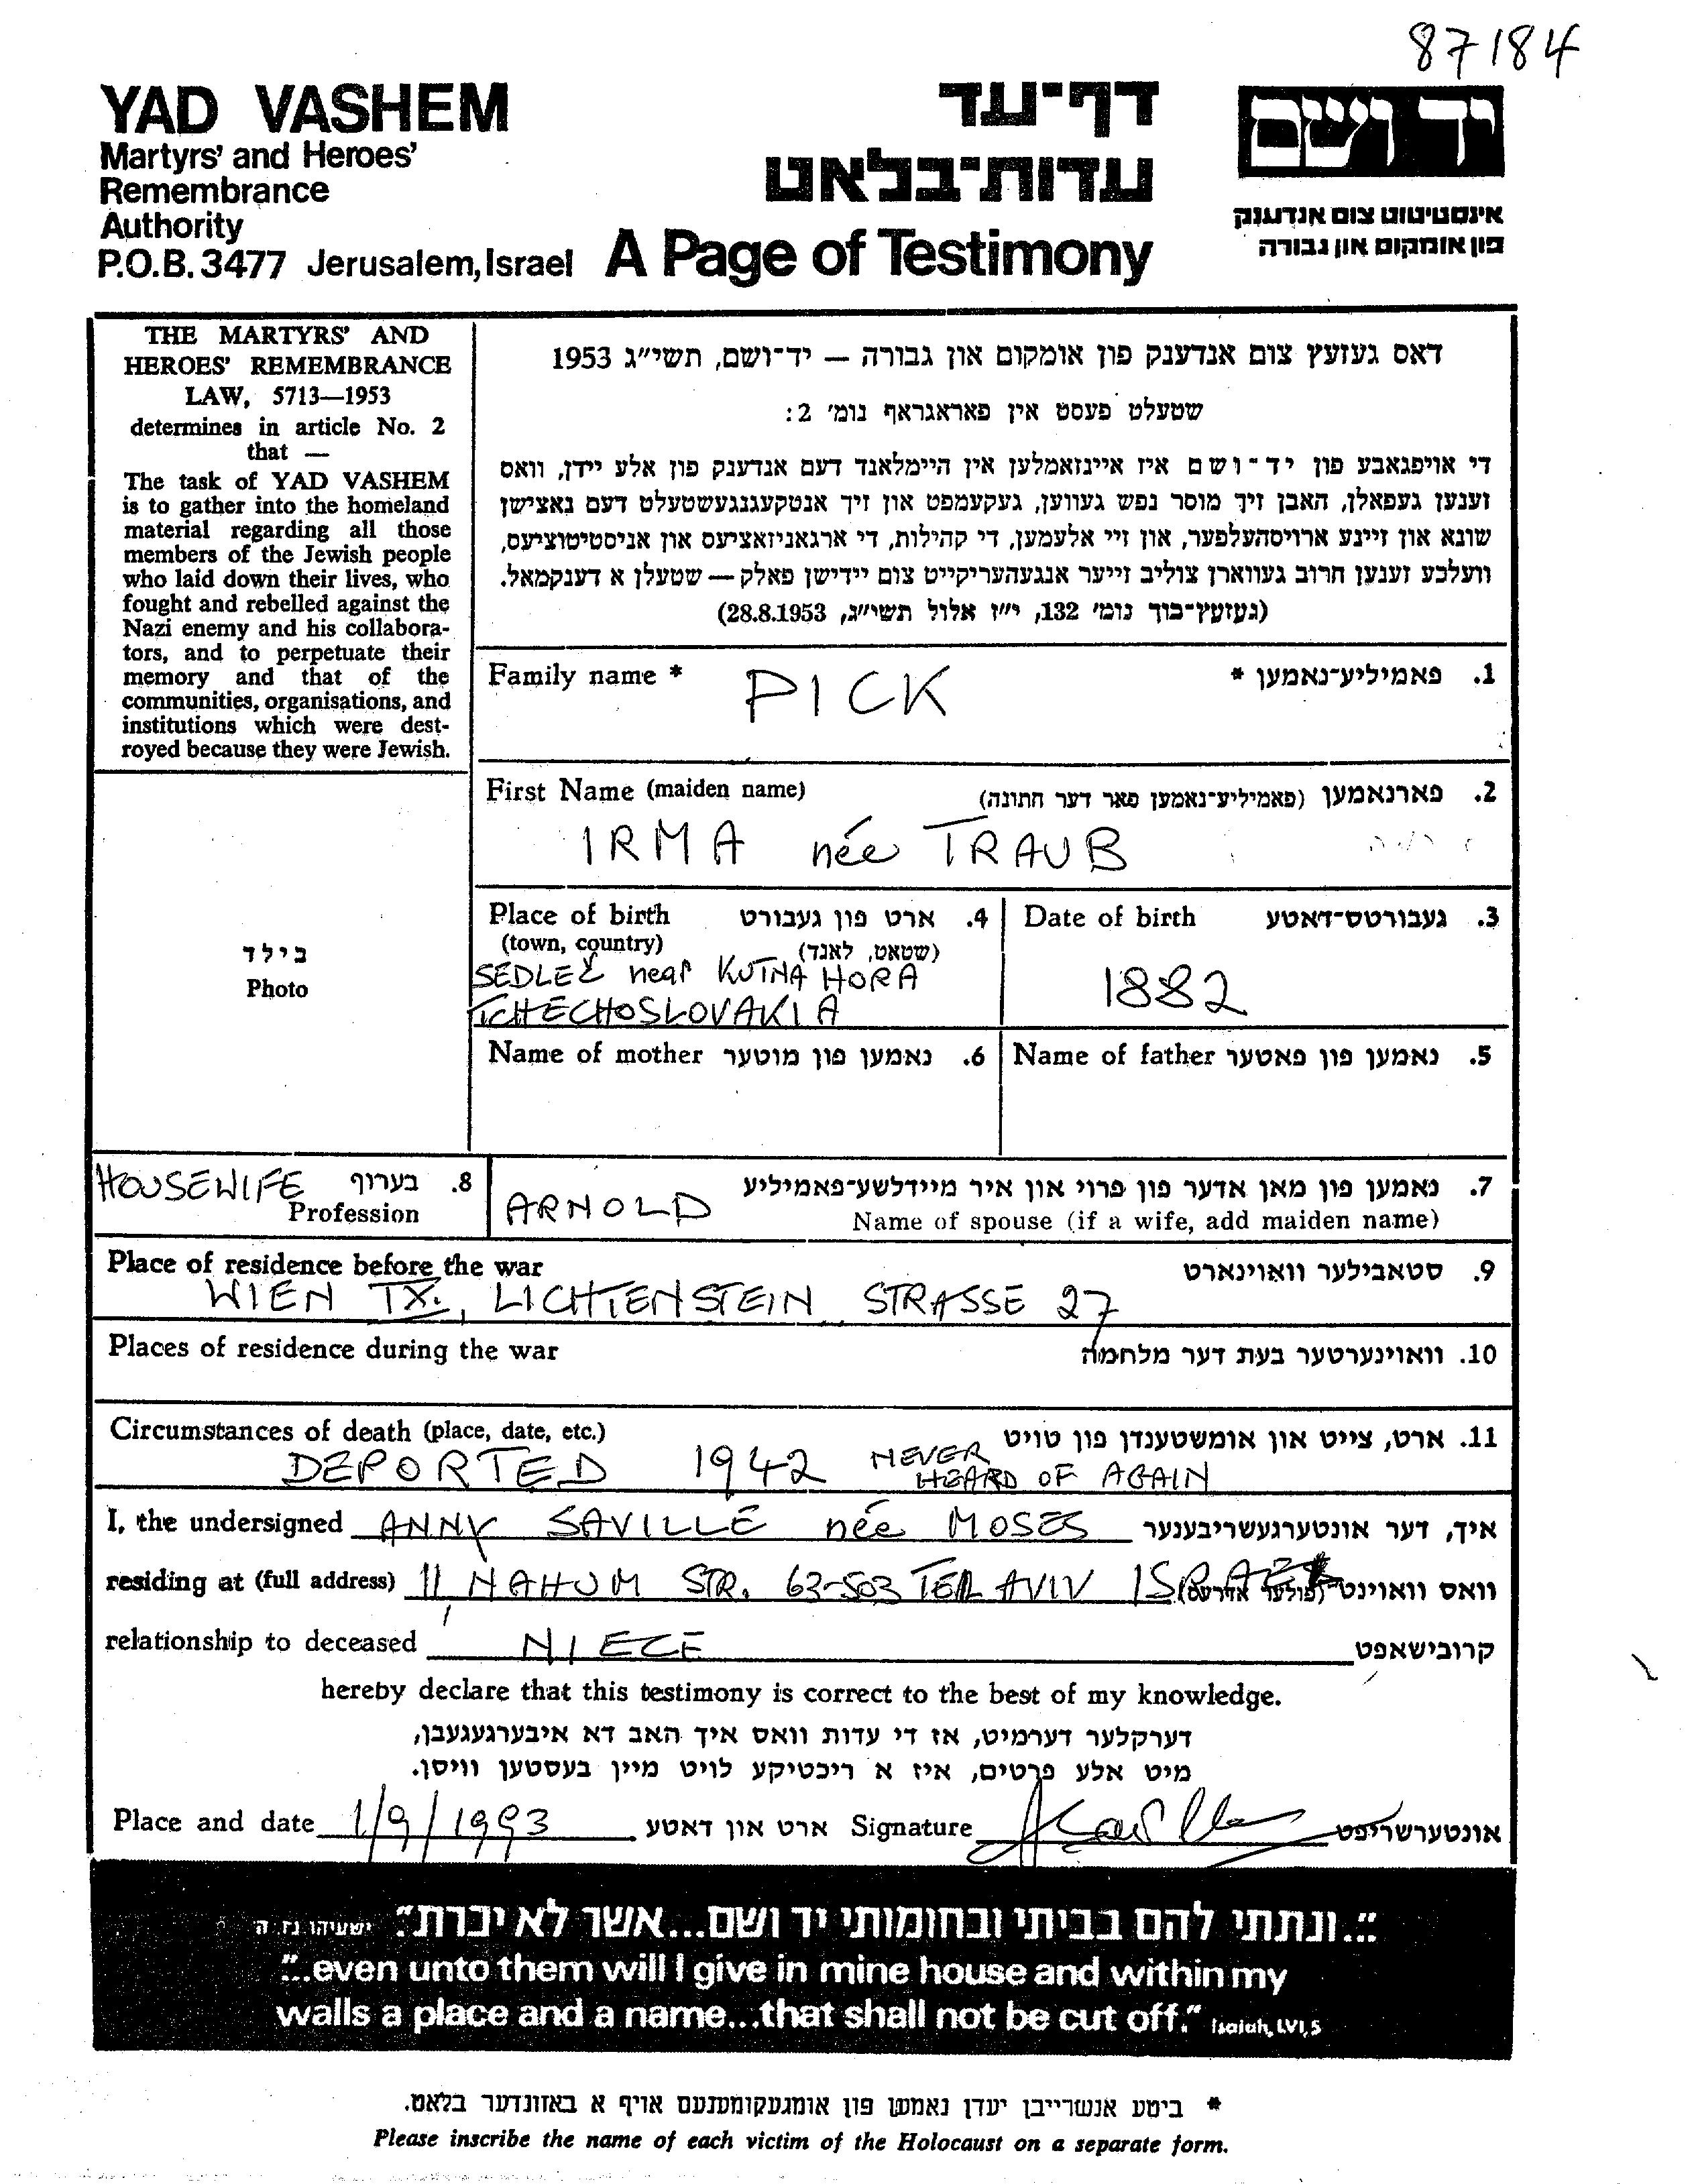 87184
YAD VASHEM
Martyrs' and Heroes'
Remembrance
Authority
P.O.B. 3477 Jerusalem, Israel
דף-עד
עדות-בלאט
A Page of Testimony
יד ושם
אינסטיטוט צום אנדענק
פון אומקום און גבורה
THE MARTYRS' AND
HEROES' REMEMBRANCE
LAW, 5713—1953
determines in article No. 2
that —
The task of YAD VASHEM
is to gather into the homeland
material regarding all those
members of the Jewish people
who laid down their lives, who
fought and rebelled against the
Nazi enemy and his collabora-
tors, and to perpetuate their
memory and that of the
communities, organisations, and
institutions which were dest-
royed because they were Jewish.
דאס געזעץ צום אנדענק פון אומקום און גבורה — יד-ושם, תשי"ג 1953
שטעלט פעסט אין פאראגראף נומ' 2:
די אויפגאבע פון יד-ושם איז איינזאמלען אין היימלאנד דעם אנדענק פון אלע יידן, וואס
זענען געפאלן, האבן זיך מוסר נפש געווען, געקעמפט און זיך אנטקעגנגעשטעלט דעם נאצישן
שונא און זיינע ארויסהעלפער, און זיי אלעמען, די קהילות, די ארגאניזאציעס און אניסטיטוציעס,
וועלכע זענען חרוב געווארן צוליב זייער אנגעהעריקייט צום יידישן פאלק — שטעלן א דענקמאל.
(געזעץ-בוך נומ' 132, י"ז אלול תשי"ג, 28.8.1953)
Family name * PICK 1. פאמיליע-נאמען *
First Name (maiden name) 2. פארנאמען (פאמיליע-נאמען פאר דער חתונה)
IRMA née TRAUB
בילד
Photo
Place of birth 4. ארט פון געבורט
(town, country) (שטאט, לאנד)
SEDLEC near KUTNA HORA
TCHECHOSLOVAKIA
Date of birth 3. געבורטס-דאטע
1882
Name of mother 6. נאמען פון מוטער
Name of father 5. נאמען פון פאטער
HOUSEWIFE 8. בערוף
Profession
7. נאמען פון מאן אדער פון פרוי און איר מיידלשע-פאמיליע
ARNOLD Name of spouse (if a wife, add maiden name)
Place of residence before the war 9. סטאבילער וואוינארט
WIEN IX., LICHTENSTEIN STRASSE 27
Places of residence during the war 10. וואוינערטער בעת דער מלחמה
Circumstances of death (place, date, etc.) 11. ארט, צייט און אומשטענדן פון טויט
DEPORTED 1942 NEVER
HEARD OF AGAIN
I, the undersigned ANNY SAVILLE née MOSES איך, דער אונטערגעשריבענער
residing at (full address) 11 NAHUM STR. 63-503 TEL AVIV ISRAEL וואס וואוינט (פולער אדרעס)
relationship to deceased NIECE קרובישאפט
hereby declare that this testimony is correct to the best of my knowledge.
דערקלער דערמיט, אז די עדות וואס איך האב דא איבערגעגעבן,
מיט אלע פרטים, איז א ריכטיקע לויט מיין בעסטען וויסן.
Place and date 1/9/1993 ארט און דאטע Signature אונטערשריפט
"...ונתתי להם בביתי ובחומותי יד ושם...אשר לא יכרת" ישעיהו נו ה
"...even unto them will I give in mine house and within my
walls a place and a name...that shall not be cut off." Isaiah, LVI, 5
* ביטע אנשרייבן יעדן נאמען פון אומגעקומענעם אויף א באזונדער בלאט.
Please inscribe the name of each victim of the Holocaust on a separate form.